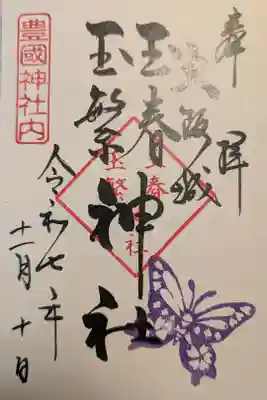 奉拝
大阪城
玉春
玉繁
神社
豊國神社内
令和七年
十一月十日